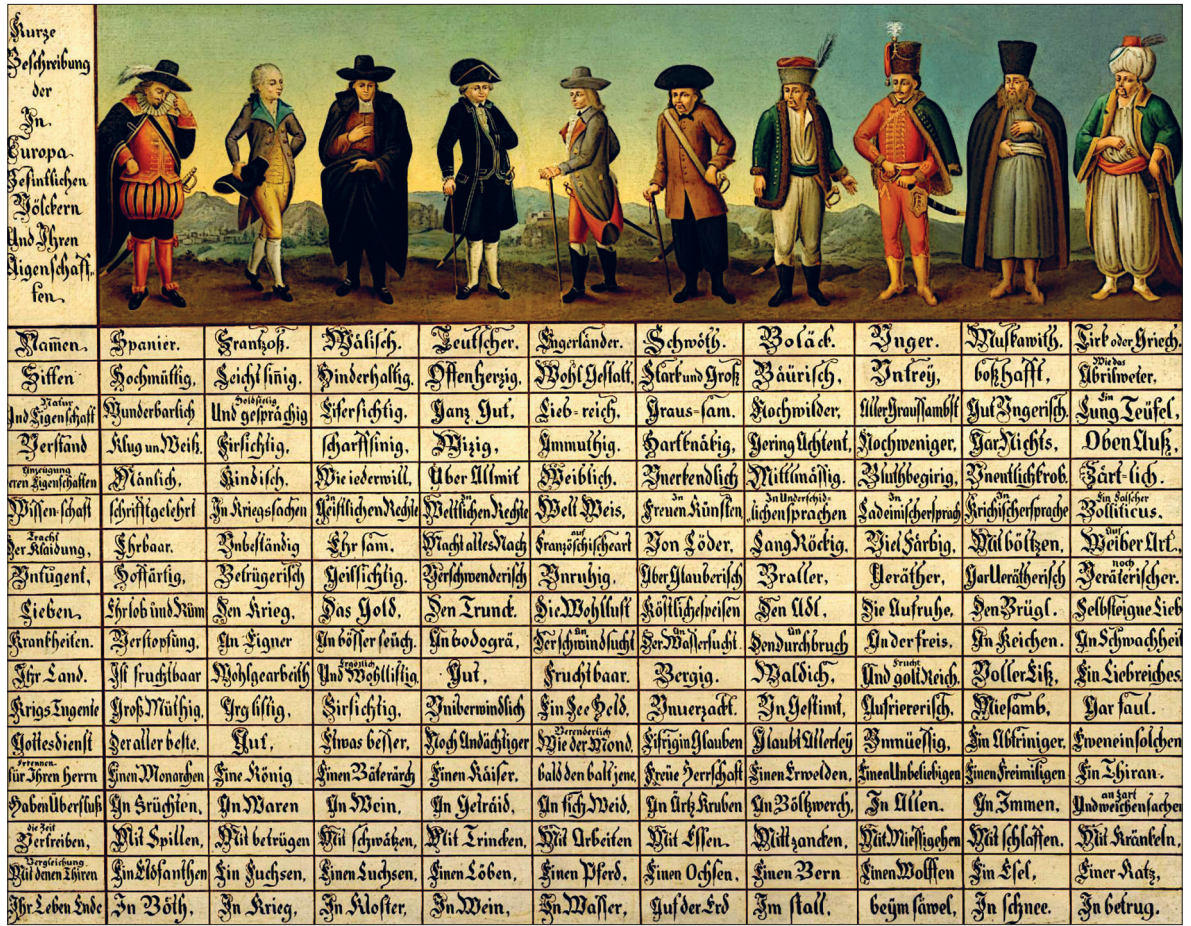 Kurze
Beschreibung
der
In
Europa
Befintlichen
Völckern
Und Ihren
Aigenschaff-
ten
Namen Spanier. Frantzoß. Wälisch. Teutscher. Engerländer. Schwöth. Boläck. Unger. Muskawith. Tirk oder Griech.
Sitten Hochmüttig, Leicht sinig. Hinderhaltig. Offenherzig, Wohl Gestalt, Stark und Groß Bäurisch, Untrey, boßhafft, Wie das Abrilweter,
Natur Und Eigenschaft Wunderbarlich Holdseelig Und gesprächig Eifersichtig, Ganz Gut, Lieb=reich, Graus=sam. Hochwilder, Aller Graussambst Gut Ungerisch. Ein Lung Teüfel,
Verstand Klug un Weiß. Firsichtig, scharffsinig, Wizig, Ammuthig. Hartknätig, Gering Achtent, Nochweniger, Gar Nichts, Oben Auß,
Anzeügung deren Eigenschaften Mänlich, Kindisch. Wie iederwill, Über Allmit Weiblich. Unerkendlich Mittlmässig. Bluthbegirig, Unentlichkrob. Zärt-lich.
Wissenschaft schrifftgelehrt In Kriegssachen Geistlichen Rechte In Weltlichen Rechte Welt Weis, In Freuen Künsten, In Underschidlichen sprachen In Ladeinischersprach In Krichischersprache Ein falscher Bolliticus.
Tracht Der Klaidung, Ehrbaar. Unbeständig Ehrsam. Macht alles Nach auf Französchischeart Von Löder, Lang Röckig, Viel Färbig, Mit böltzen, Auf Weiber Art.,
Untugent, Hoffärtig, Betrügerisch Geilsichtig. Verschwenderisch Unruhig, Aber Glauberisch Braller, Veräther, Gar Verätherisch noch Veräterischer.
Lieben. Ehrlob und Rüm Den Krieg, Das Gold. Den Trunck. Die Wohllust Köstlichespeisen Den Adl. Die Aufruhe, Den Brügl. Selbsteigne Lieb
Krankheiten. Verstopfung, An Eigner An bösser seüch. An bodogrä, Der schwindsucht Der Wassersucht An Den durchbruch An der freis. An Keichen. An Schwachheit
Ihr Land. Ist fruchtbaar Wohlgearbeith Ergözlich Und Wohllistig Gut, Fruchtbaar. Bergig. Waldich, Frucht Und golt Reich. Voller Eiß, Ein Liebreiches
Krigs Tugente Groß Müthig, Arg listig, Firsichtig, Uniberwindlich Ein See Held. Unuerzackt. Un Gestimt, Aufriererisch, Miesamb, Gar faul.
Gottesdienst Der aller beste, Gut, Etwas besser, Noch Andächtiger Verenderlich Wie der Mond. Eifrig in Glauben Glaubt Allerley Unmüessig, Ein Abtriniger, Eweneinsolchen
Erkennen für Ihren Herrn Einen Monarchen Eine König Einen Bäterärch Einen Käiser. bald den balt jene, Freüe Herrschaft Einen Erwelden, Einen Unbeliebigen Einen Freimiligen Ein Thiran.
Haben Überfluß An Früchten, An Waren An Wein, An Geträid, An fich Weid, An Ärtz Kruben An Böltzwerch, In Allen. An Immen, an zart Und weichensachen
die Zeit Vertreiben, Mit Spillen, Mit betrügen Mit schwätzen, Mit Trincken, Mit Arbeiten Mit Essen. Mitt zancken, Mit Miessigehen Mit schlaffen. Mit Kränkeln,
Vergleichung Mit denen Thiren Ein Elofanthen Ein Fuchsen, Einen Luchsen, Einen Löben, Einen Pferd, Einen Ochsen, Einen Bern Einen Wolffen Ein Esel, Einer Katz,
Ihr Leben Ende In Böth, In Krieg, In Kloster, In Wein, In Wasser, Auf der Erd Im stall, beym säwel, In schnee. In betrug.